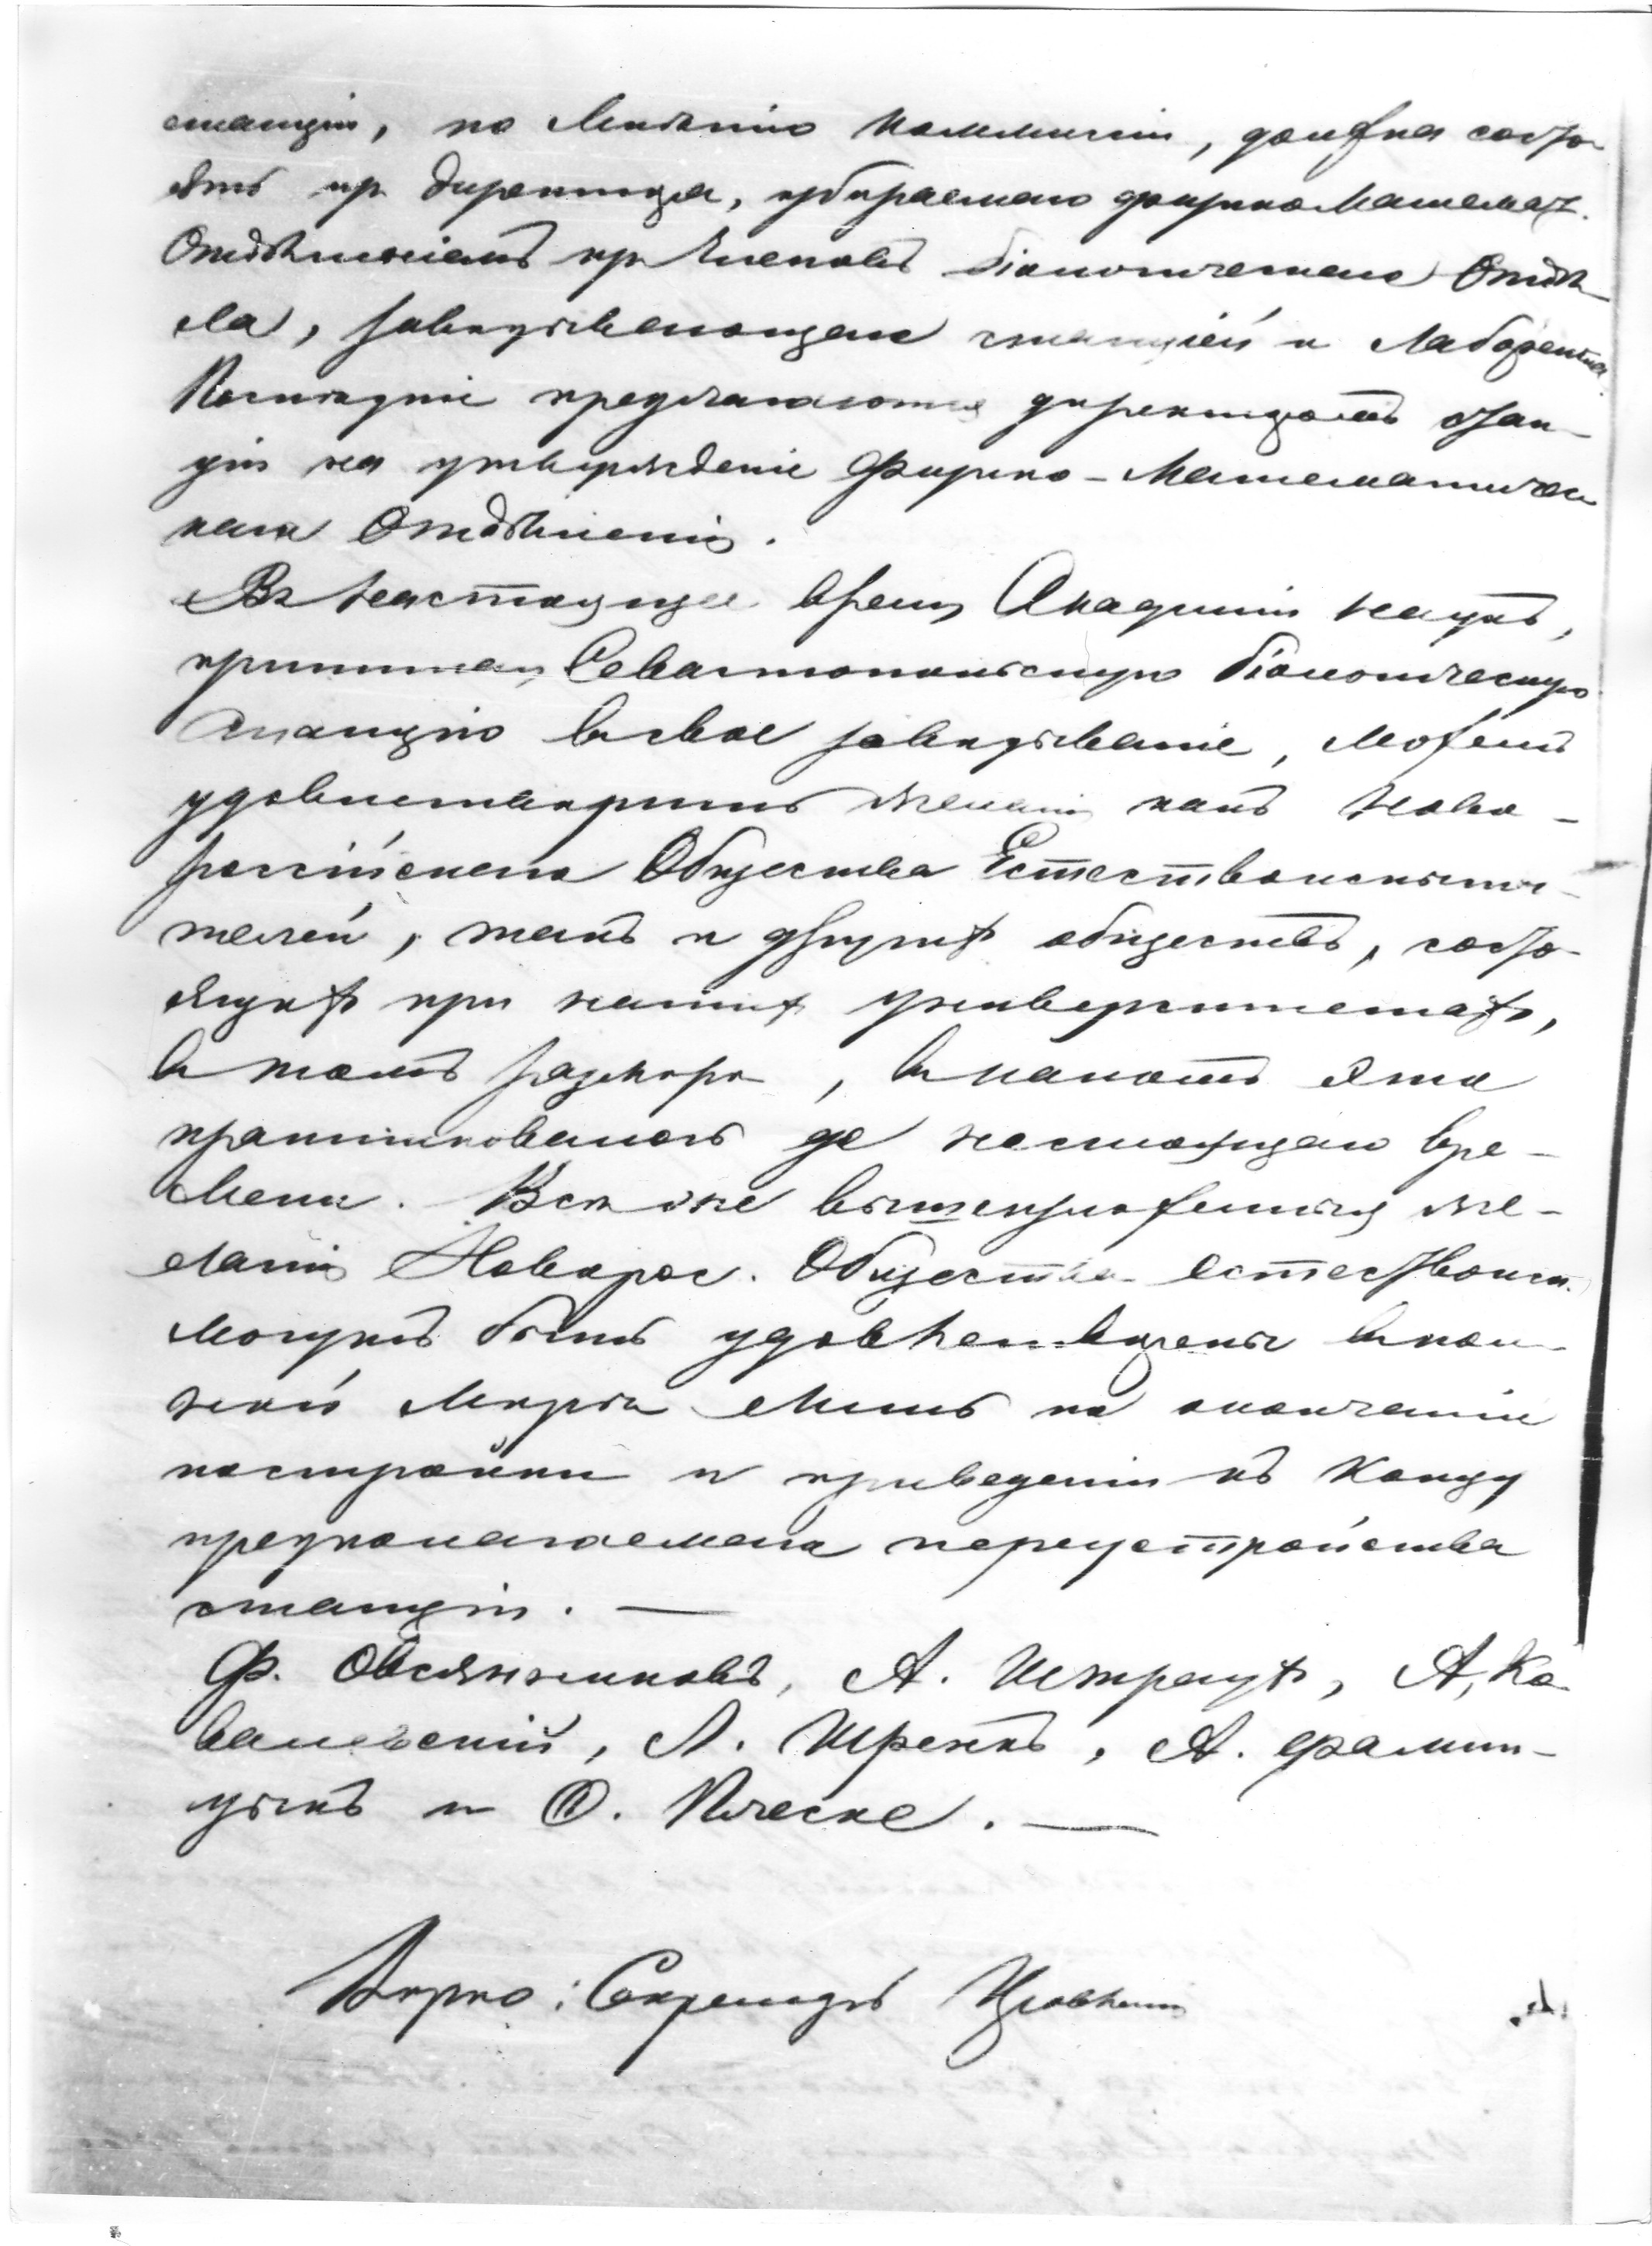 станціи, по мнѣнію коммиссіи, должна состо-
ять изъ директора, избираемаго физикоматемат.
Отдѣленіемъ изъ членовъ біологическаго Отдѣ-
ла, завѣдывающаго станціей и лаборанта.
Послѣдніе предлагаются директоромъ стан-
ціи на утвержденіе Физико-Математичес
каго Отдѣленія.
Въ настоящее время Академія наукъ,
принимая Севастопольскую біологическую
станцію въ свое завѣдываніе, можетъ
удовлетворить желанія какъ Ново-
россійскаго Общества Естествоиспыта-
телей, такъ и другихъ обществъ, состо-
ящихъ при нашихъ университетахъ,
въ томъ размѣрѣ, въ какомъ это
практиковалось до настоящаго вре-
мени. Всѣ же вышеизложенныя же-
ланія Новорос. Общества естествоисп.
могутъ быть удовлетворены въ пол-
ной мѣрѣ лишь по окончаніи
постройки и приведеніи къ концу
предполагаемаго переустройства
станціи. —
Ф. Овсянниковъ, А. Штраухъ, А. Ко-
валевскій, Л. Шренкъ, А. Фамин-
цынъ и Ѳ. Плеске. —
Вѣрно: Секретарь